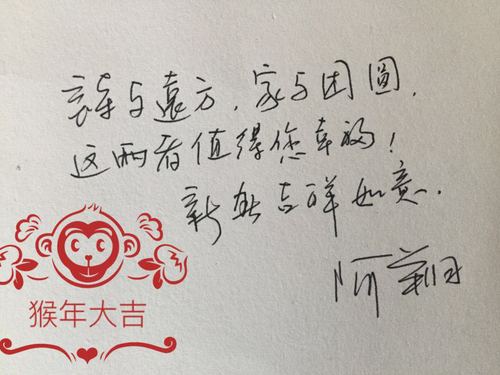 诗与遠方，家与团圓，
这两者值得您幸福！
新年吉祥如意.
阿
猴年大吉